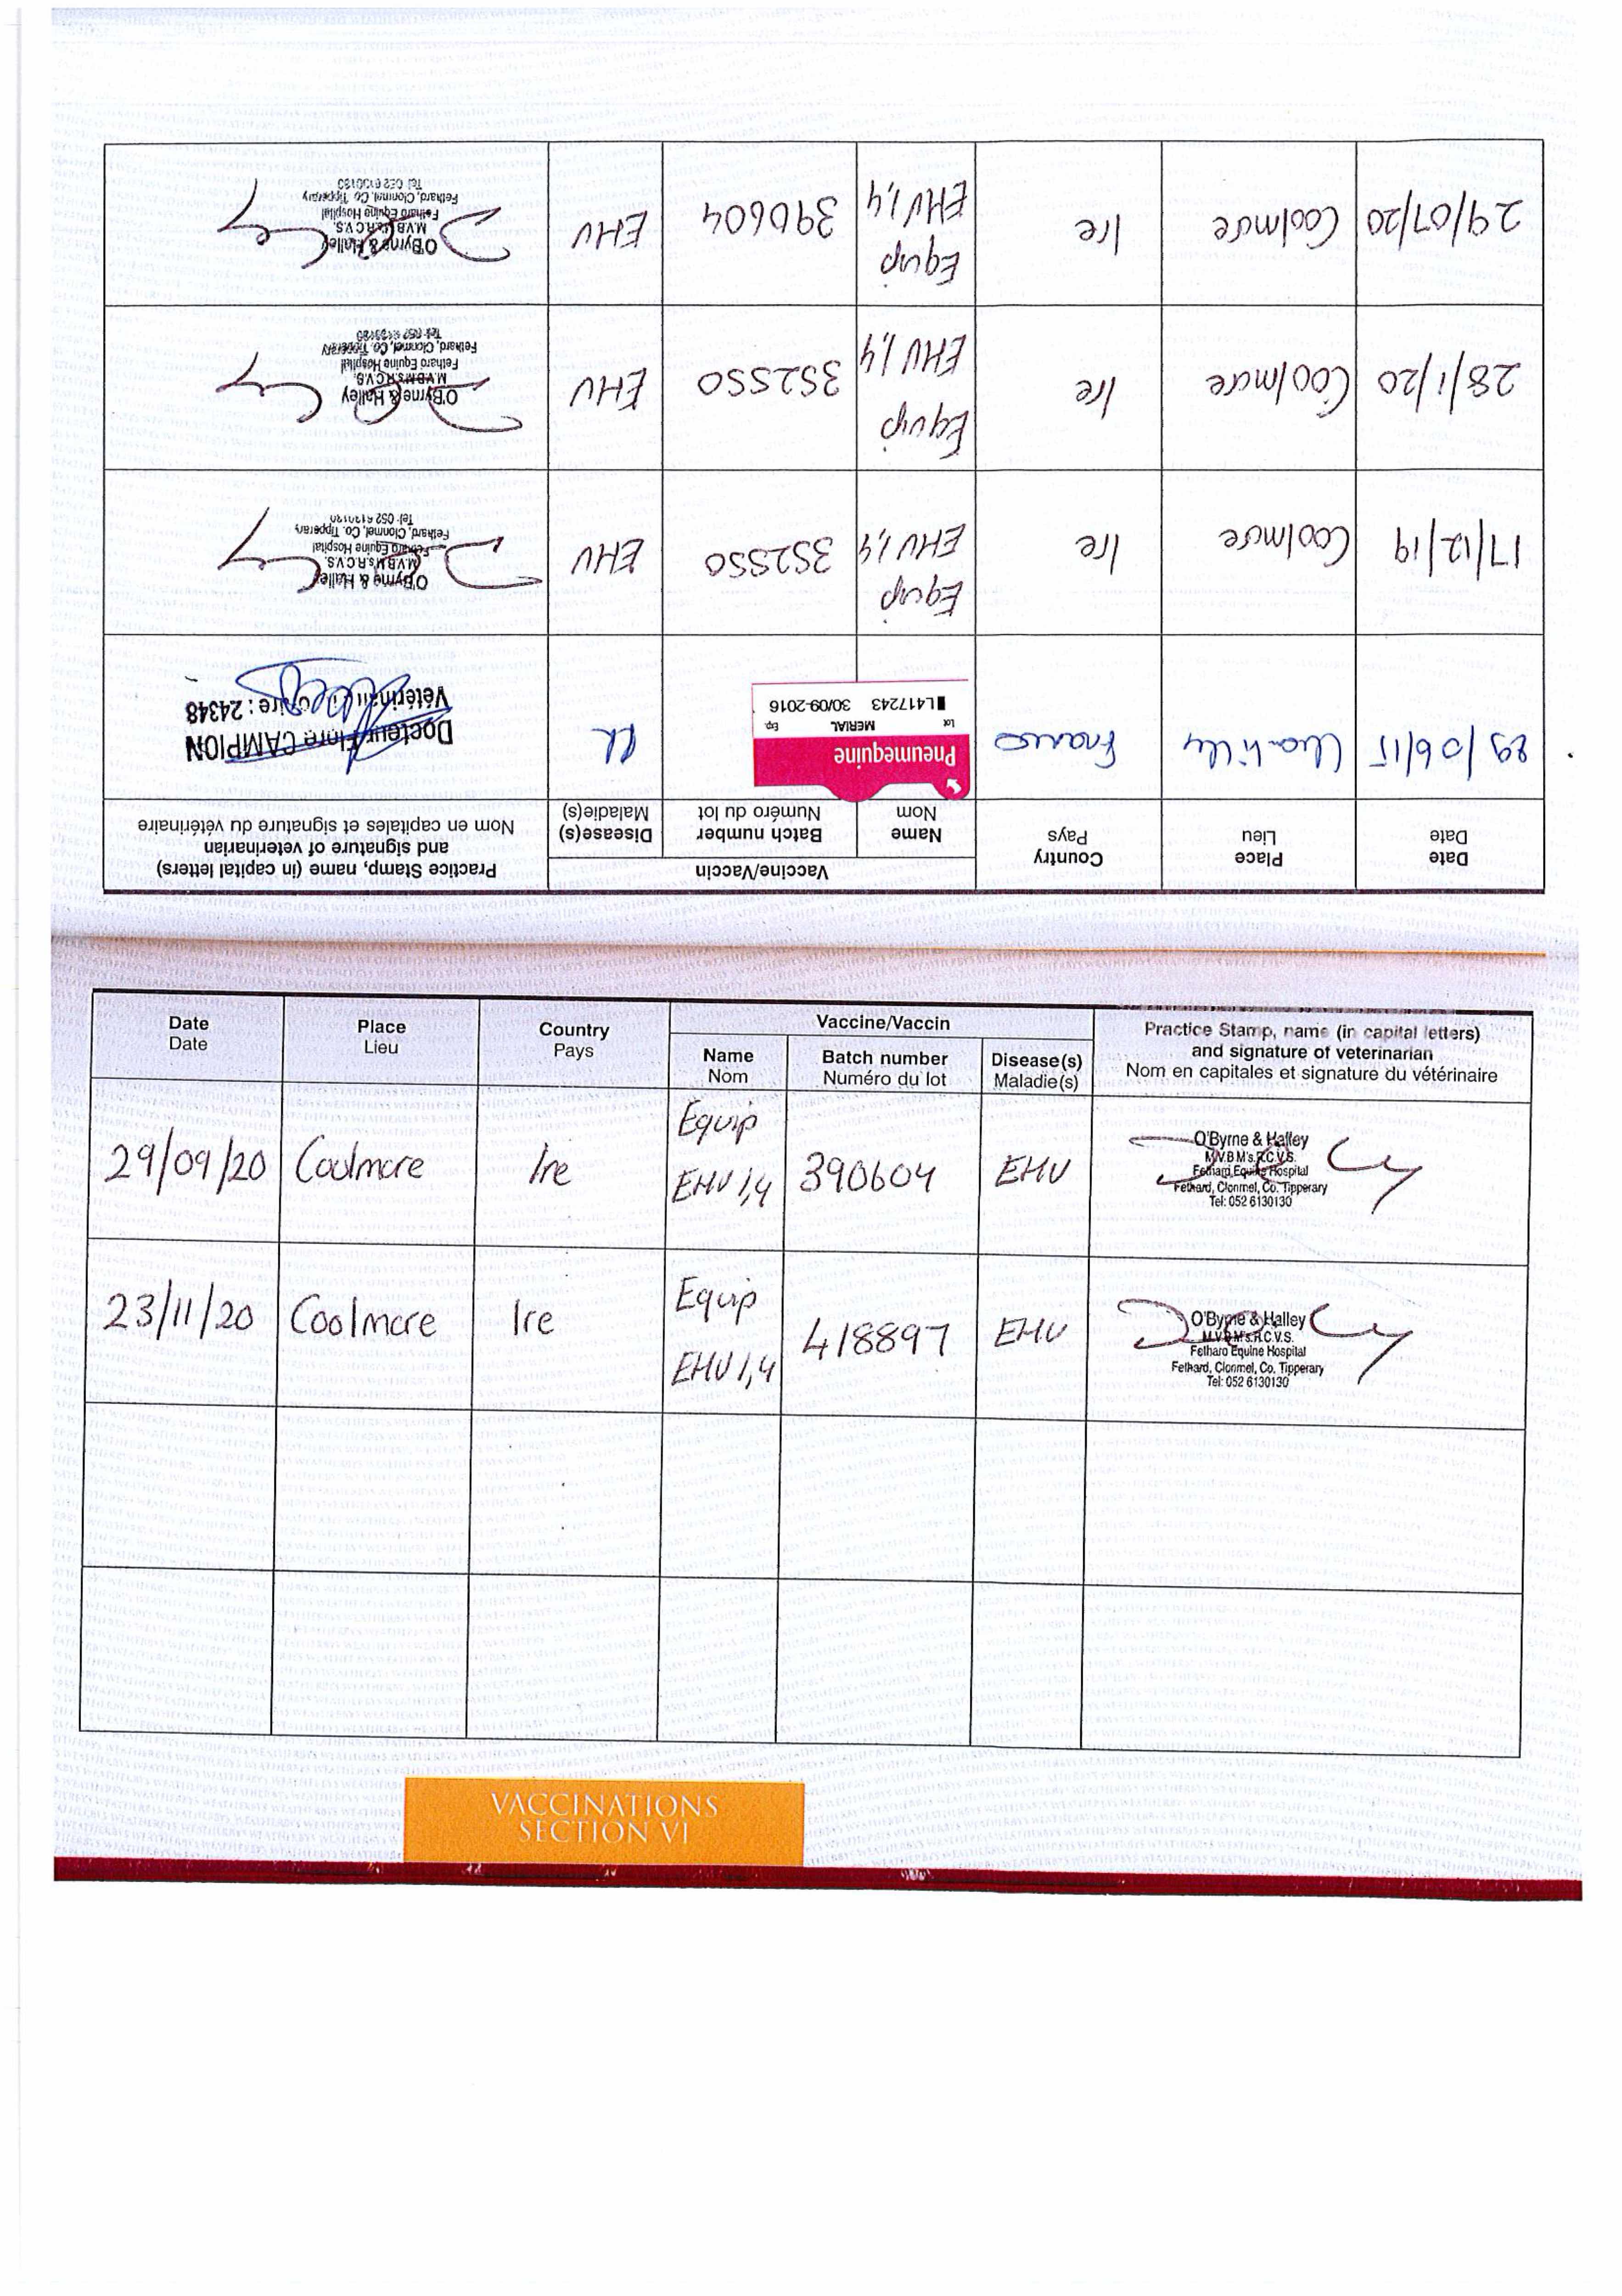 Date
Date
Place
Lieu
Country
Pays
Vaccine/Vaccin
Name
Nom
Batch number
Numéro du lot
Disease(s)
Maladie(s)
Practice Stamp, name (in capital letters)
and signature of veterinarian
Nom en capitales et signature du vétérinaire
29/06/15
Chantilly
France
Pneumequine
Lot
MERIAL
Exp
L417243 30/09-2016
Docteur Flore CAMPION
24348
17/12/19
Coolmore
Ire
Equip
EHV 1,4
352550
EHV
O'Byrne & Halley
M.V.B M's.R.C.V.S.
Fethard Equine Hospital
Fethard, Clonmel, Co. Tipperary
Tel: 052 6130130
28/1/20
Coolmore
Ire
Equip
EHV 1,4
352550
EHV
O'Byrne & Halley
M.V.B M's.R.C.V.S.
Fethard Equine Hospital
Fethard, Clonmel, Co. Tipperary
Tel: 052 6130130
29/07/20
Coolmore
Ire
Equip
EHV 1,4
390604
EHV
O'Byrne & Halley
M.V.B M's.R.C.V.S.
Fethard Equine Hospital
Fethard, Clonmel, Co. Tipperary
Tel: 052 6130130
Date
Date
Place
Lieu
Country
Pays
Vaccine/Vaccin
Name
Nom
Batch number
Numéro du lot
Disease(s)
Maladie(s)
Practice Stamp, name (in capital letters)
and signature of veterinarian
Nom en capitales et signature du vétérinaire
29/09/20
Coolmore
Ire
Equip
EHV 1,4
390604
EHV
O'Byrne & Halley
M.V.B M's.R.C.V.S.
Fethard Equine Hospital
Fethard, Clonmel, Co. Tipperary
Tel: 052 6130130
23/11/20
Coolmore
Ire
Equip
EHV 1,4
418897
EHV
O'Byrne & Halley
M.V.B M's.R.C.V.S.
Fethard Equine Hospital
Fethard, Clonmel, Co. Tipperary
Tel: 052 6130130
VACCINATIONS
SECTION VI